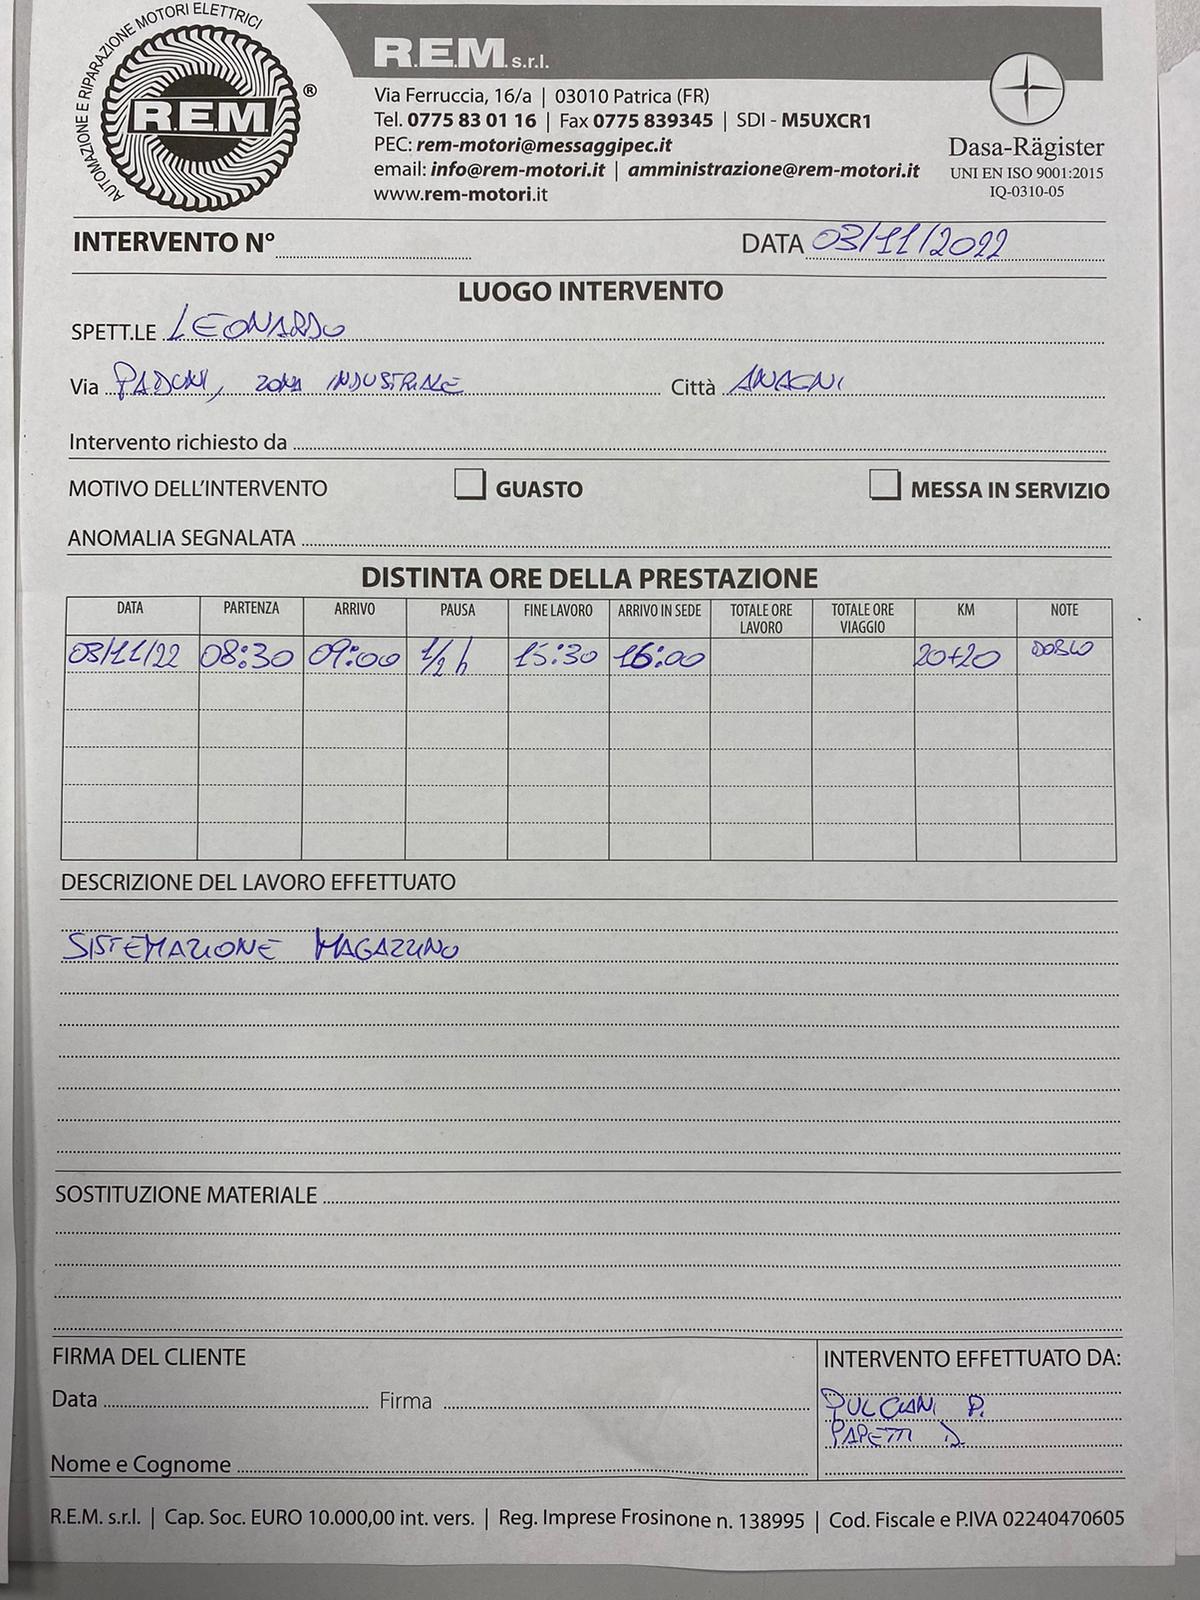 AUTOMAZIONE E RIPARAZIONE MOTORI ELETTRICI
R.E.M ®
R.E.M. s.r.l.
Via Ferruccia, 16/a | 03010 Patrica (FR)
Tel. 0775 83 01 16 | Fax 0775 839345 | SDI - M5UXCR1
PEC: rem-motori@messaggipec.it
email: info@rem-motori.it | amministrazione@rem-motori.it
www.rem-motori.it
Dasa-Rägister
UNI EN ISO 9001:2015
IQ-0310-05
INTERVENTO N° DATA 03/11/2022
LUOGO INTERVENTO
SPETT.LE LEONARDO
Via PADUNI, ZONA INDUSTRIALE Città ANAGNI
Intervento richiesto da
MOTIVO DELL'INTERVENTO GUASTO MESSA IN SERVIZIO
ANOMALIA SEGNALATA
DISTINTA ORE DELLA PRESTAZIONE
DATA PARTENZA ARRIVO PAUSA FINE LAVORO ARRIVO IN SEDE TOTALE ORE LAVORO TOTALE ORE VIAGGIO KM NOTE
03/11/22 08:30 09:00 1/2 h 15:30 16:00 20+20 DOBLO
DESCRIZIONE DEL LAVORO EFFETTUATO
SISTEMAZIONE MAGAZZINO
SOSTITUZIONE MATERIALE
FIRMA DEL CLIENTE
Data Firma
Nome e Cognome
INTERVENTO EFFETTUATO DA:
PULCIANI P.
PAPETTI D.
R.E.M. s.r.l. | Cap. Soc. EURO 10.000,00 int. vers. | Reg. Imprese Frosinone n. 138995 | Cod. Fiscale e P.IVA 02240470605